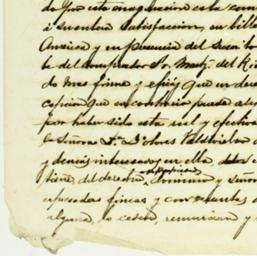 do por esta enagenacion esta
á su entera satisfaccion, en bille
America y en presencia del
te del comprador Dn.
do mas firme y eficaz que en dere
cepcion que en contrario puede
por haber sido esta real y efectiva
la Señora Da. Dolores Valdivielso
y demás interesados en ella,
tiene, del derecho, dominio y seño
espresadas fincas y
alguna, lo ceden, renuncian y